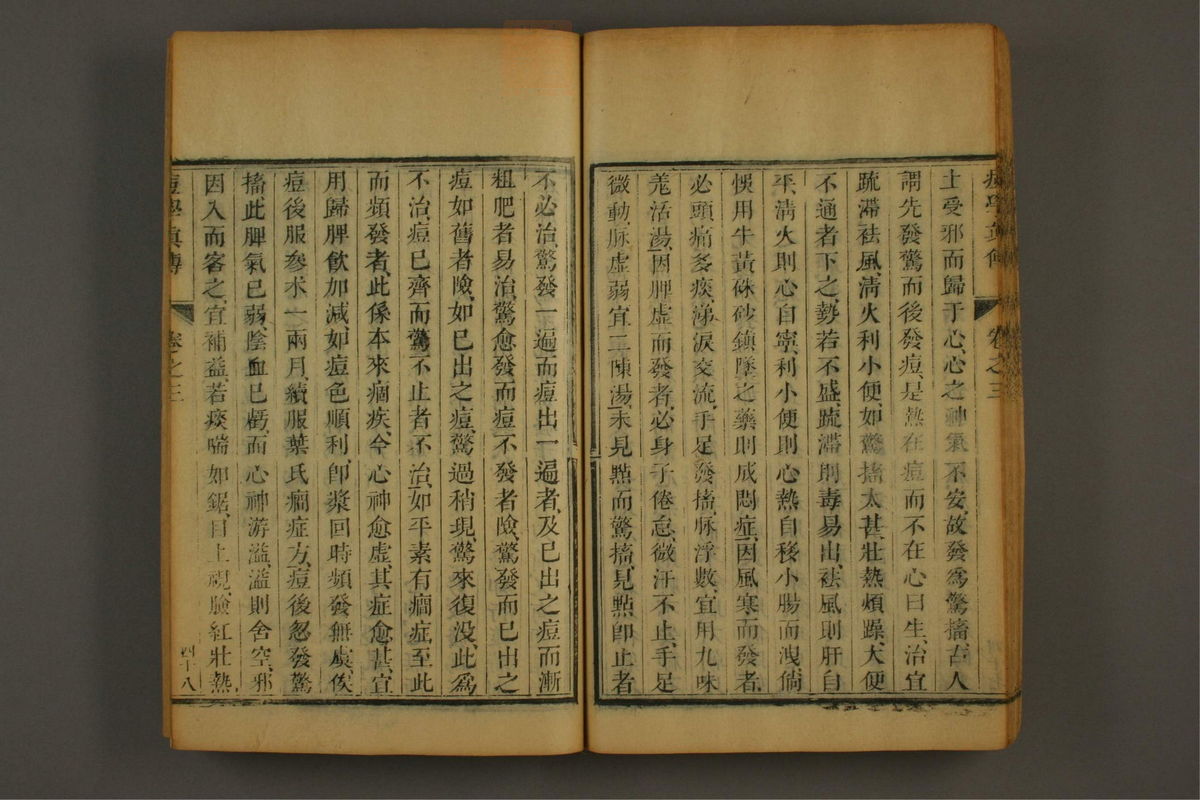 痘學眞傳 卷之三
上受邪而歸于心心之神氣不安故發爲驚搐古人
謂先發驚而後發痘是熱在痘而不在心曰生治宜
疏滯祛風清火利小便如驚搐太甚壯熱煩躁大便
不通者下之勢若不盛疏滯則毒易出祛風則肝自
平清火則心自寧利小便則心熱自移小腸而洩倘
悞用牛黃硃砂鎮墜之藥則成悶症因風寒而發者
必頭痛多痰涕淚交流手足發搐脉浮數宜用九味
羗活湯因脾虛而發者必身子倦怠微汗不止手足
微動脉虛弱宜二陳湯未見點而驚搐見點卽止者
不必治驚發一遍而痘出一遍者及已出之痘而漸
粗肥者易治驚愈發而痘不發者險驚發而已出之
痘如舊者險如已出之痘驚過稍現驚來復没此爲
不治痘已齊而驚不止者不治如平素有癎症至此
而頻發者此係本來痼疾今心神愈虛其症愈甚宜
用歸脾飲加减如痘色順利卽漿回時頻發無虞俟
痘後服參朮一兩月續服葉氏癎症方痘後忽發驚
搐此脾氣已弱陰血已虧而心神游溢溢則舍空邪
因入而客之宜補益若痰喘如鋸目上視臉紅壯熱
痘學眞傳 卷之三 四十八